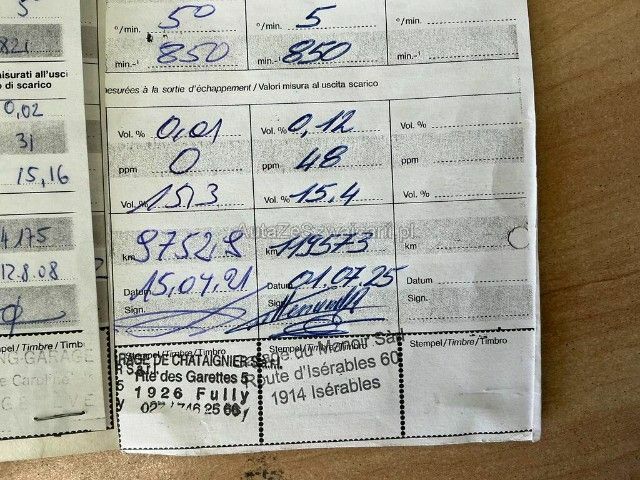 5
821
misurati all'usci
o di scarico
0,02
31
15,16
4175
12.8.08
mpel/Timbre/Timb
°/min. 5° °/min. 5 °/min.
min.⁻¹ 850 min.⁻¹ 850 min.⁻¹
mesurées à la sortie d'échappement/Valori misura al uscita scarico
Vol. % 0,01 Vol. % 0,12 Vol. %
ppm 0 ppm 48 ppm
Vol. % 15,3 Vol. % 15.4 Vol. %
AutaZeSzwajcarii.pl
km 97529 km 119573 km
Datum 15.04.21 Datum 01.07.25 Datum
Sign. Sign. Sign.
Stempel/Timbre/Timbro Stempel/Timbre/Timbro Stempel/Timbre/Timbro
RAGE DE CHATAIGNIER S.à.r.l.
Rte des Garettes 5
1926 Fully
du Manoir Sàrl
Route d'Isérables 60
1914 Isérables